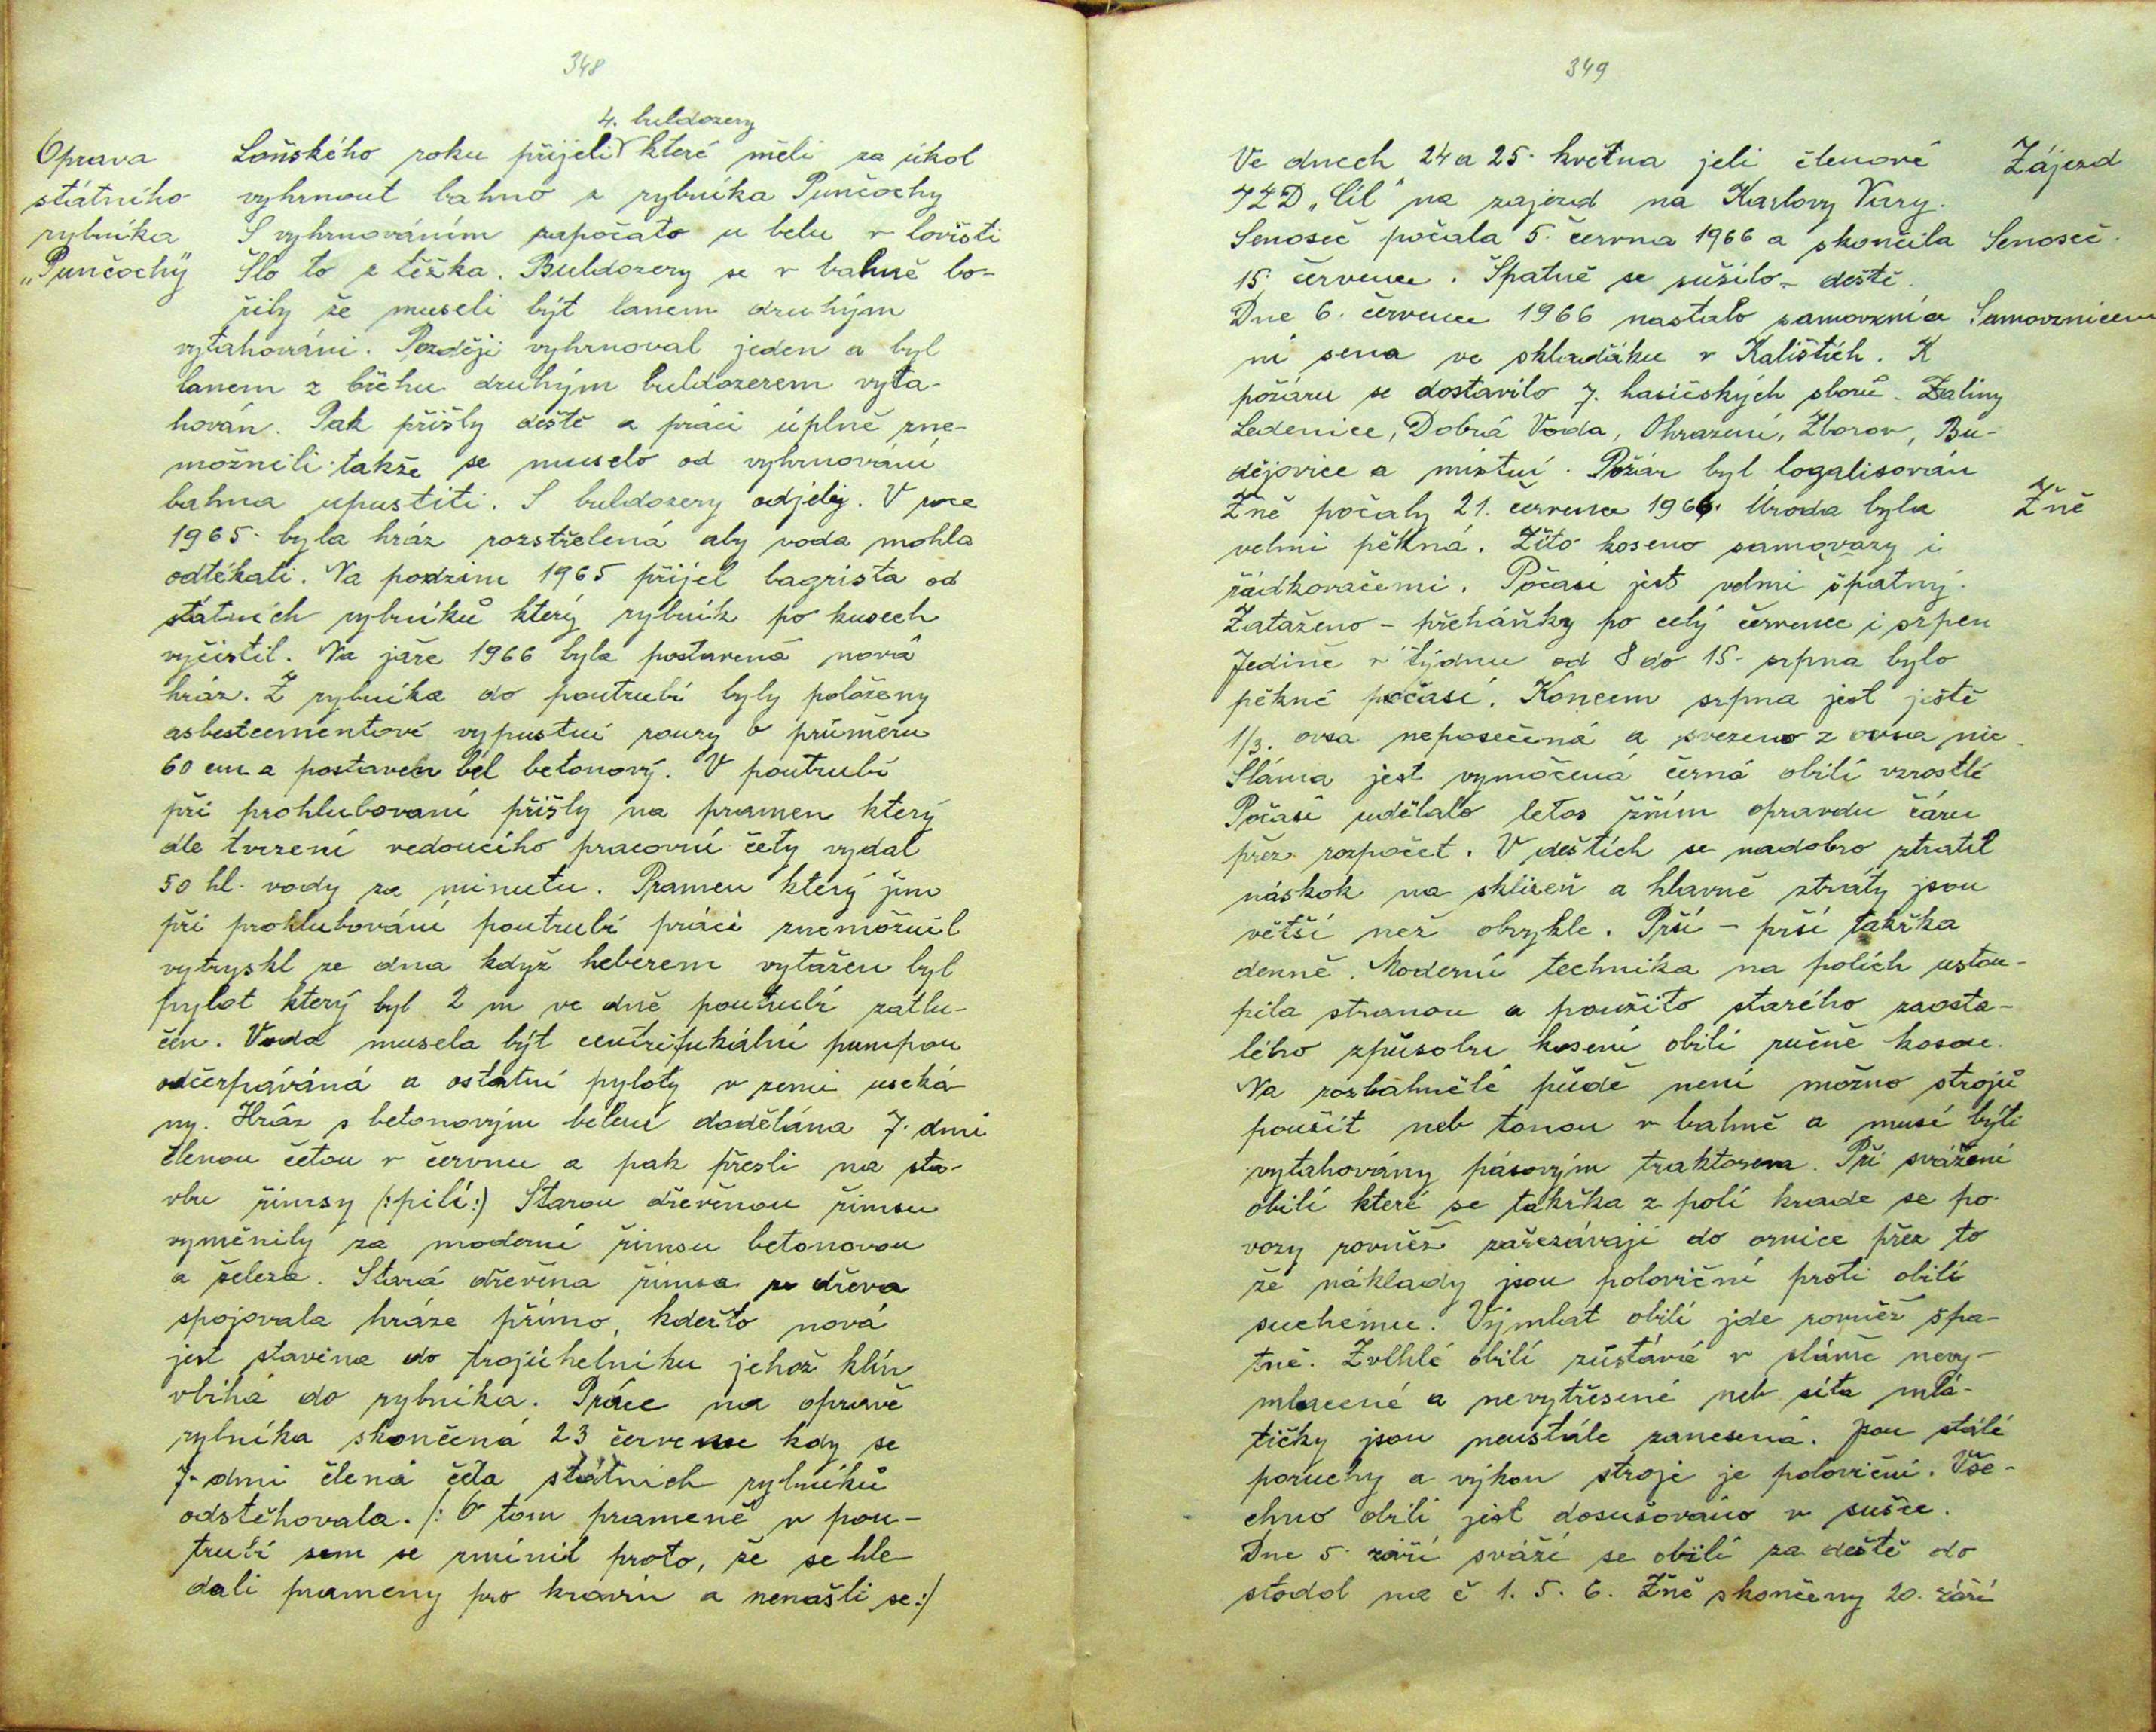 348
Oprava
státního
rybníka
„Punčochy"
4. buldozery
Loňského roku přijeli které měli za úkol
vyhrnout bahno z rybníka Punčochy
S vyhrnováním započato u belu v lovišti
Šlo to z těžka. Buldozery se v bahně bo-
řily že museli být lanem druhým
vytahováni. Později vyhrnoval jeden a byl
lanem z břehu druhým buldozerem vyta-
hován. Pak přišly deště a práci úplně zne-
možnili takže se muselo od vyhrnování
bahna upustiti. S buldozery odjely. V roce
1965 byla hráz rozstřelená aby voda mohla
odtékati. Na podzim 1965 přijel bagrista od
státních rybníků který rybník po kusech
vyčistil. Na jaře 1966 byla postavená nová
hráz. Z rybníka do poutrubí byly položeny
asbestcementové vypustní roury o průměru
60 cm a postaven bél betonový. V poutrubí
při prohlubovaní přišly na pramen který
dle tvrzení vedoucího pracovní čety vydal
50 hl. vody za minutu. Pramen který jim
při prohlubování poutrubí práci znemožnil
vytryskl ze dna když heberem vytažen byl
pylot který byl 2 m ve dně poutrubí zatlu-
čen. Voda musela být centrifukální pumpou
odčerpáváná a ostatní pyloty v zemi useká-
ny. Hráz s betonovým belem dodělána 7. dmi
členou četou v červnu a pak přešli na sta-
vbu řimsy (:pilí:) Starou dřevěnou řimsu
vyměnily za moderní řimsu betonovou
a železa. Stará dřevěna řimsa ze dřeva
spojovala hráze přímo, kdežto nová
jest stavěna do trojúhelníku jehož klín
vbíhá do rybníka. Práce na opravě
rybníka skončená 23 července kdy se
7-dmi člená četa státních rybníků
odstěhovala. /: O tom prameně v pou-
trubí sem se zmínil proto, že se hle-
dali prameny pro kravín a nenašli se:/
349
Ve dnech 24 a 25. května jeli členové
JZD „Cíl" na zajezd na Karlovy Vary.
Zájezd
Senoseč počala 5. června 1966 a skončila
Senoseč.
15. července. Špatně se sušilo - deště.
Dne 6. července 1966 nastalo samovzníce
Samovznícení
ní sena ve skladáku v Kalištích. K
požáru se dostavilo 7. hasičských sborů. Zaliny
Ledenice, Dobrá Voda, Ohrazení, Zborov, Bu-
dějovice a místní. Požár byl logalisován
Žně počaly 21. července 1966. Úroda byla
Žně
velmi pěkná. Žito koseno samovazy i
řádkovačemi. Počasí jest velmi špatný.
Zataženo - přeháňky po celý červenec i srpen
Jedině v týdnu od 8 do 15. srpna bylo
pěkné počasí. Koncem srpna jest ještě
1/3. ovsa neposečená a svezeno z ovsa nic.
Sláma jest vymočená černá obilí vzrostlé
Počasí udělalo letos žním opravdu čáru
přez rozpočet. V deštích se nadobro ztratil
náskok na sklizeň a hlavně ztráty jsou
větší než obvykle. Prší - prší takřka
denně. Moderní technika na polích ustou-
pila stranou a použito starého zaosta-
lého způsobu kosení obilí ručně kosou.
Na rozbahnělé půdě není možno strojů
použít neb tonou v bahně a musí býti
vytahovány pásovým traktorem. Při svážení
obilí které se takřka z polí krade se po-
vozy rovněž zařezávají do ornice přez to
že náklady jsou poloviční proti obilí
suchému. Výmlat obilí jde rovněž špa-
tně. Zvlhlé obilí zůstává v slámě nevy-
mlacené a nevytřesené neb síta mlá-
tičky jsou neustále zanesená. Jsou stálé
poruchy a výkon stroje je poloviční. Vše-
chno obilí jest dosušováno v sušce.
Dne 5. září sváží se obilí za deště do
stodol na č 1. 5. 6. Žně skončeny 20. září